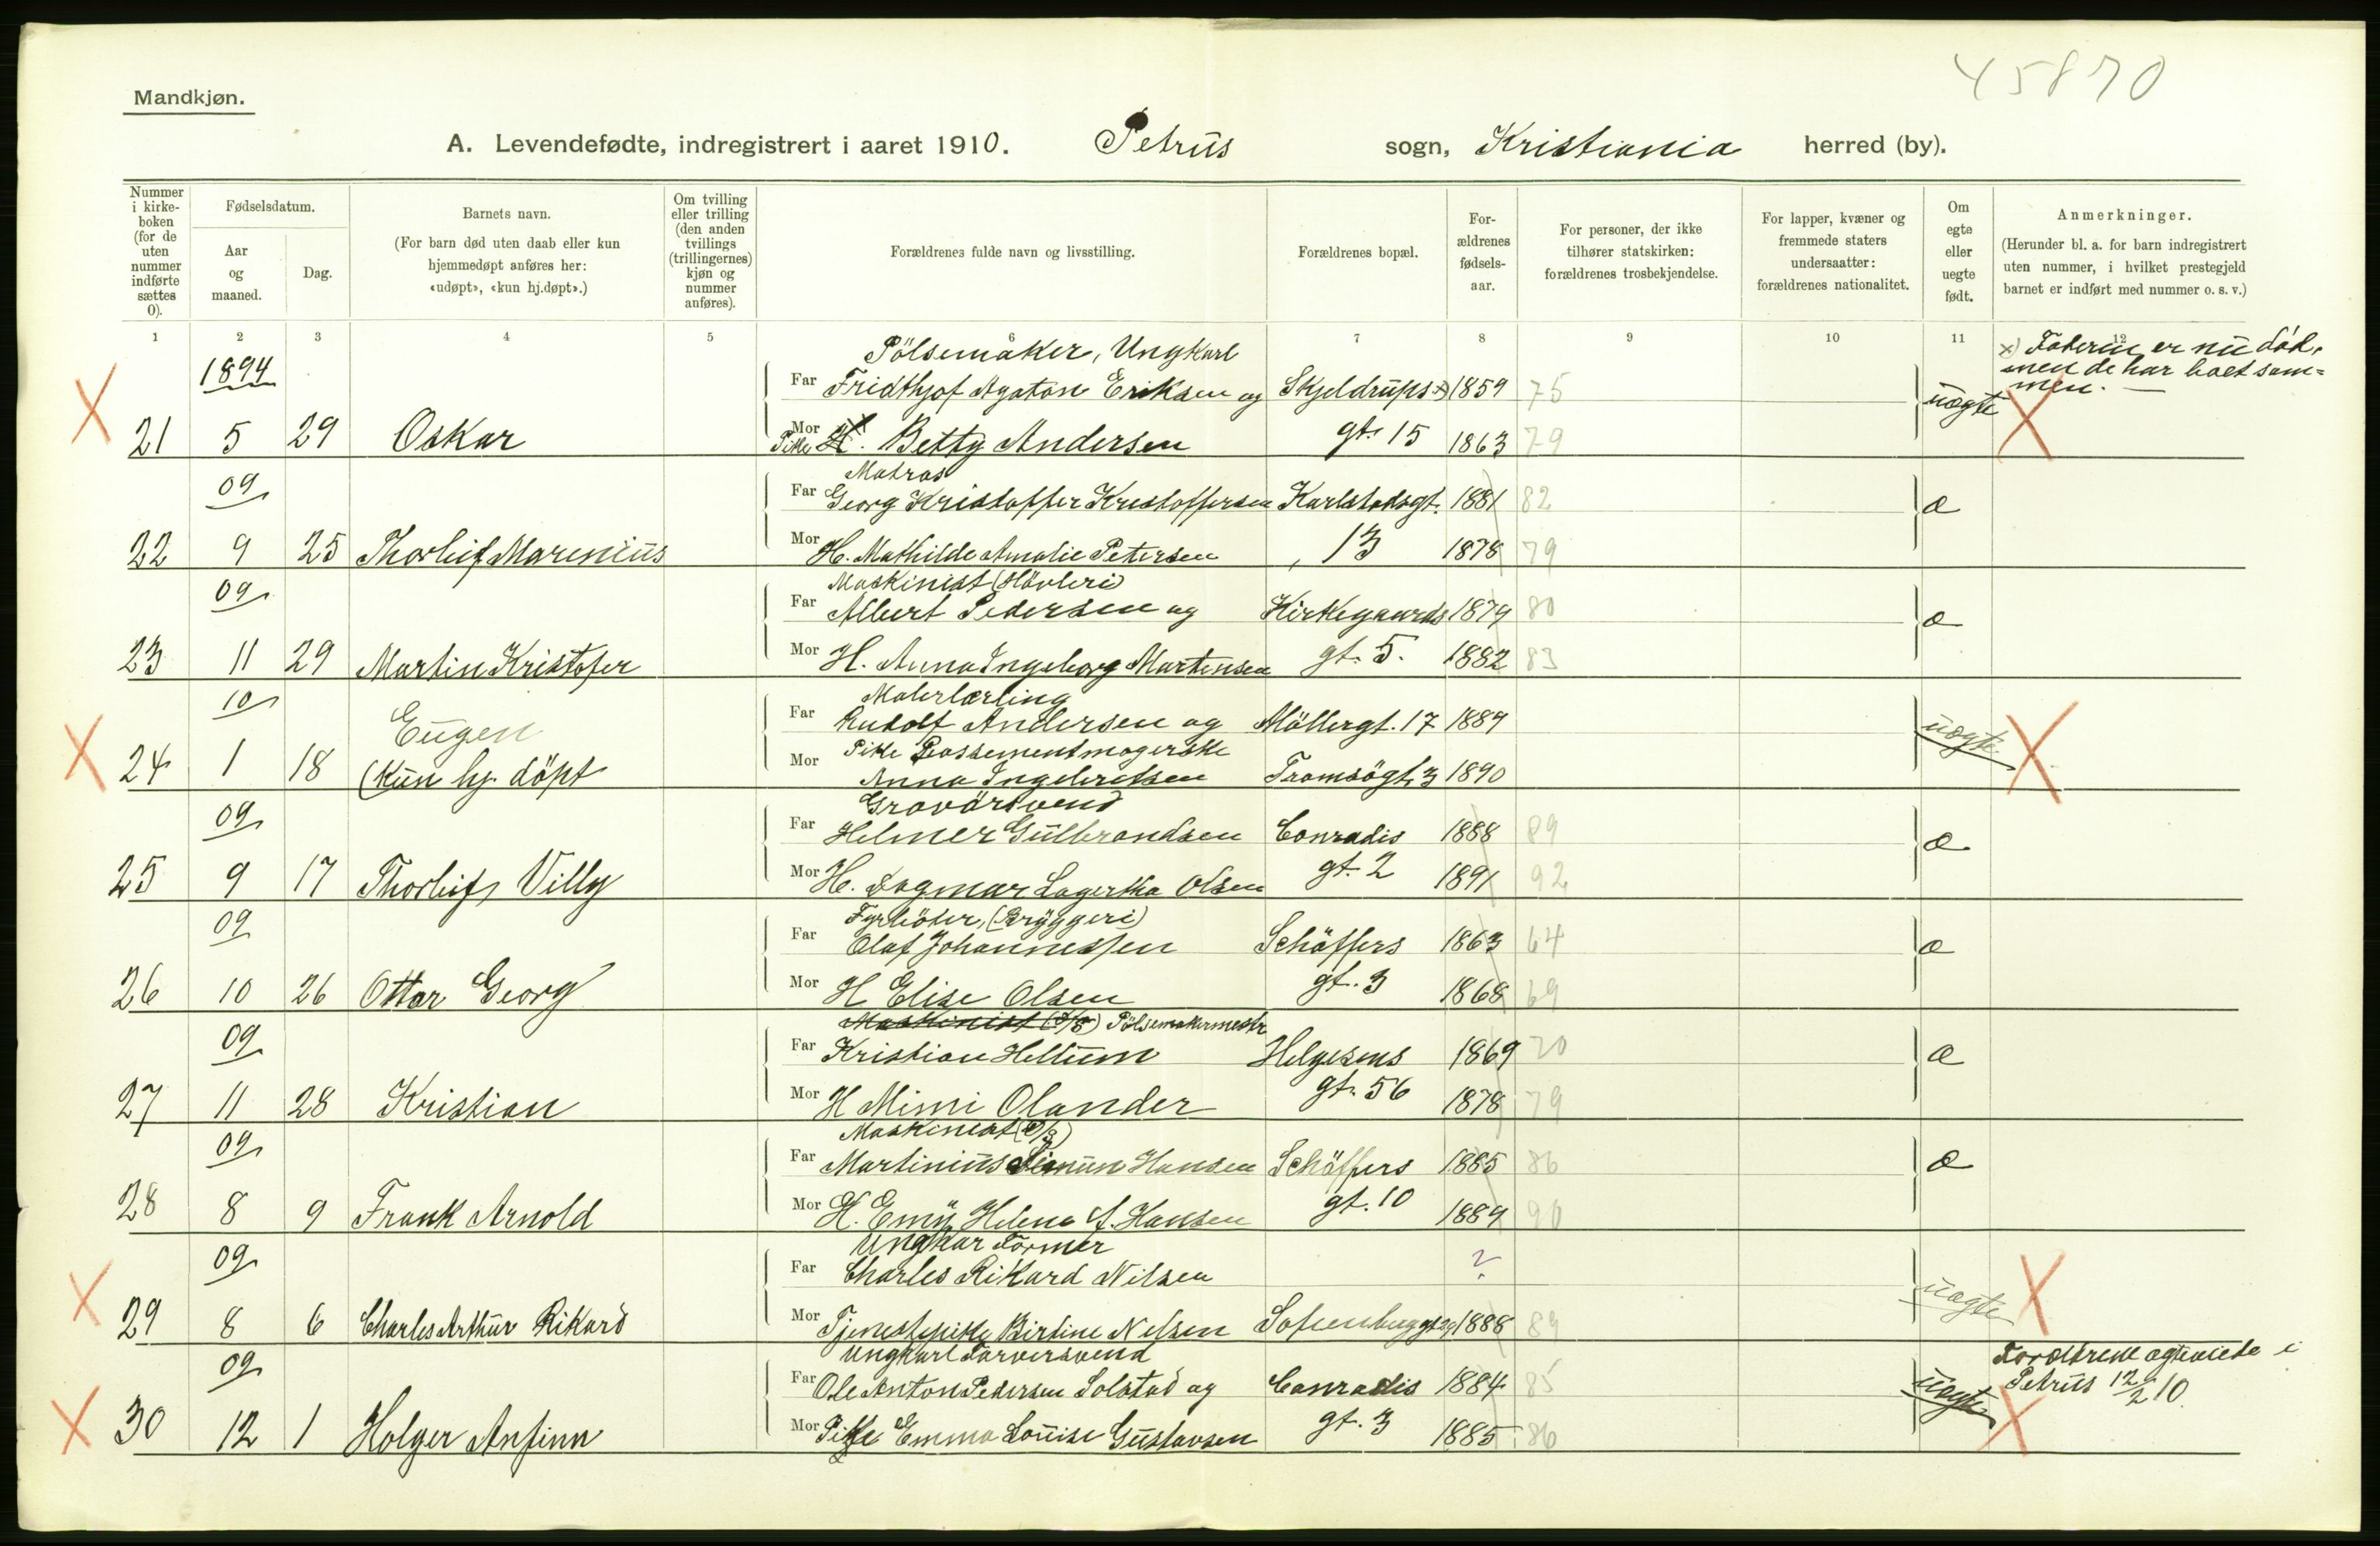 45870
Mandkjøn.
A. Levendefødte, indregistrert i aaret 1910. Petrus sogn, Kristiania herred (by).
Nummer i kirkeboken (for de uten nummer indførte sættes 0).
Fødselsdatum.
Aar og maaned.
Dag.
Barnets navn.
(For barn død uten daab eller kun hjemmedøpt anføres her: «udøpt», «kun hj.døpt».)
Om tvilling eller trilling (den anden tvillings (trillingernes) kjøn og nummer anføres).
Forældrenes fulde navn og livsstilling.
Forældrenes bopæl.
Forældrenes fødselsaar.
For personer, der ikke tilhører statskirken: forældrenes trosbekjendelse.
For lapper, kvæner og fremmede staters undersaatter: forældrenes nationalitet.
Om egte eller uegte født.
Anmerkninger.
(Herunder bl. a. for barn indregistrert uten nummer, i hvilket prestegjeld barnet er indført med nummer o. s. v.)
1 2 3 4 5 6 7 8 9 10 11 12
Pölsemaker, Ungkarl
x) Faderen er nu död, men de har boet sammen.
1894
Far Fridthjof Agaton Eriksen og Skjeldrups x) 1859 75
uægte
21 5 29 Oskar
Mor Pike H. Betty Andersen gt. 15 1863 79
Matros
09
Far Georg Kristoffer Kristoffersen Karlstadsgt. 1881 82
æ
22 9 25 Thorleif Marenius
Mor H. Mathilde Amalie Petersen 13 1878 79
Maskinist (Hövleri)
09
Far Albert Pedersen og Kirkegaards 1879 80
æ
23 11 29 Martin Kristofer
Mor H. Anna Ingeborg Martinsen gt. 5. 1882 83
Malerlærling
10
Far Rudolf Andersen og Möllergt. 17 1889
uægte
Eugen
24 1 18 (Kun hj. döpt
Pike Possementmagerske
Mor Anna Ingebretsen Tromsögt. 3 1890
Gravörsvend
09
Far Helmer Gulbrandsen Conradis 1888 89
æ
25 9 17 Thorleif Villy
Mor H. Dagmar Lagertha Olsen gt. 2 1891 92
Fyrböter, (Bryggeri)
09
Far Olaf Johannessen Schäffers 1863 64
æ
26 10 26 Ottar Georg
Mor H Elise Olsen gt. 3 1868 69
Maskinist (D/S) Pölsemakermestr
09
Far Kristian Hellum Helgesens 1869 70
æ
27 11 28 Kristian
Mor H Mimi Olander gt. 56 1878 79
Maskinist (D/S)
09
Far Martinius Simun Hansen Schäffers 1885 86
æ
28 8 9 Frank Arnold
Mor H. Emy Helena A. Hansen gt. 10 1889 90
Ungkar Former
09
Far Charles Rikard Nilsen ?
uægte
29 8 6 Charles Arthur Rikard
Mor Tjenestepike Birtine Nelsen 1888 89
Ungkarl Farversvend
Forældrene ægteviede i Petrus 12/2 10.
09
Far Ole Anton Pedersen Solstad og Conradis 1884 85
uægte
30 12 1 Holger Anfinn
Mor Pike Emma Louise Gustavsen gt. 3 1885 86